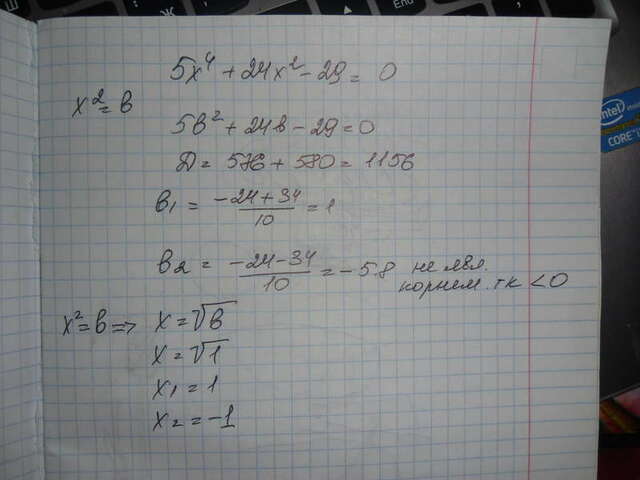 5x⁴ + 24x² - 29 = 0
x² = в
5в² + 24в - 29 = 0
Д = 576 + 580 = 1156
в₁ = (-24 + 34)/10 = 1
в₂ = (-24 - 34)/10 = -58 не явл.
корнем. тк < 0
x² = в => x = √в
x = √1
x₁ = 1
x₂ = -1
Enc
intel
CORE